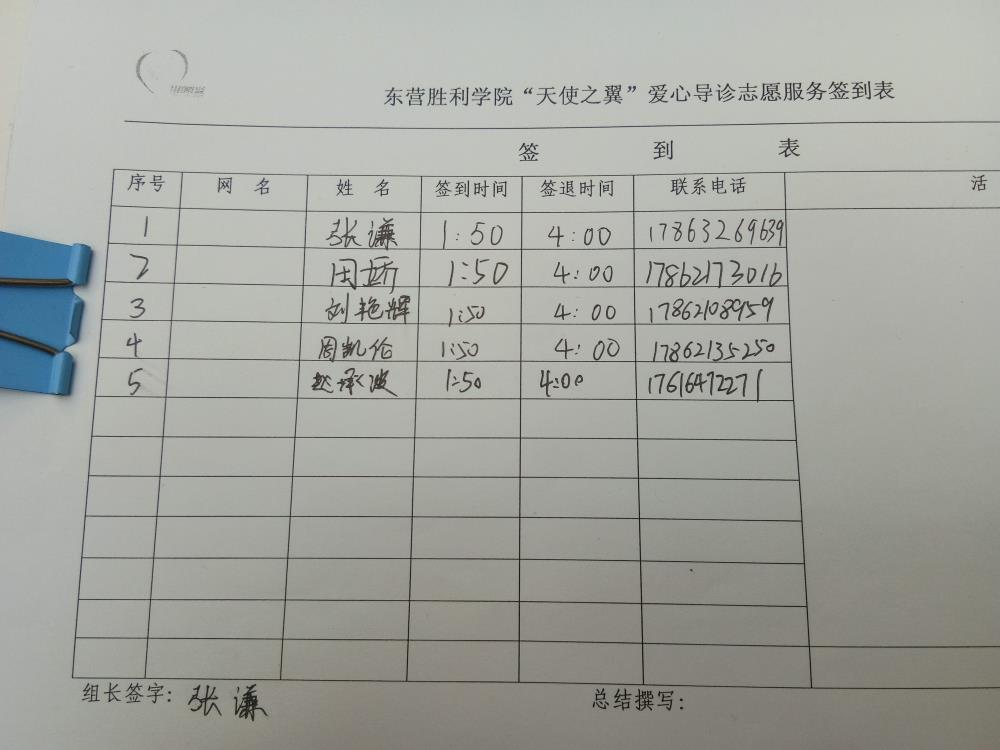 东营胜利学院“天使之翼”爱心导诊志愿服务签到表
签 到 表
序号 网 名 姓 名 签到时间 签退时间 联系电话 活
1 张谦 1:50 4:00 17863269639
2 田娇 1:50 4:00 17862173016
3 刘艳辉 1:50 4:00 17862108959
4 周凯伦 1:50 4:00 17862135250
5 赵承波 1:50 4:00 17616472271
组长签字: 张谦 总结撰写: